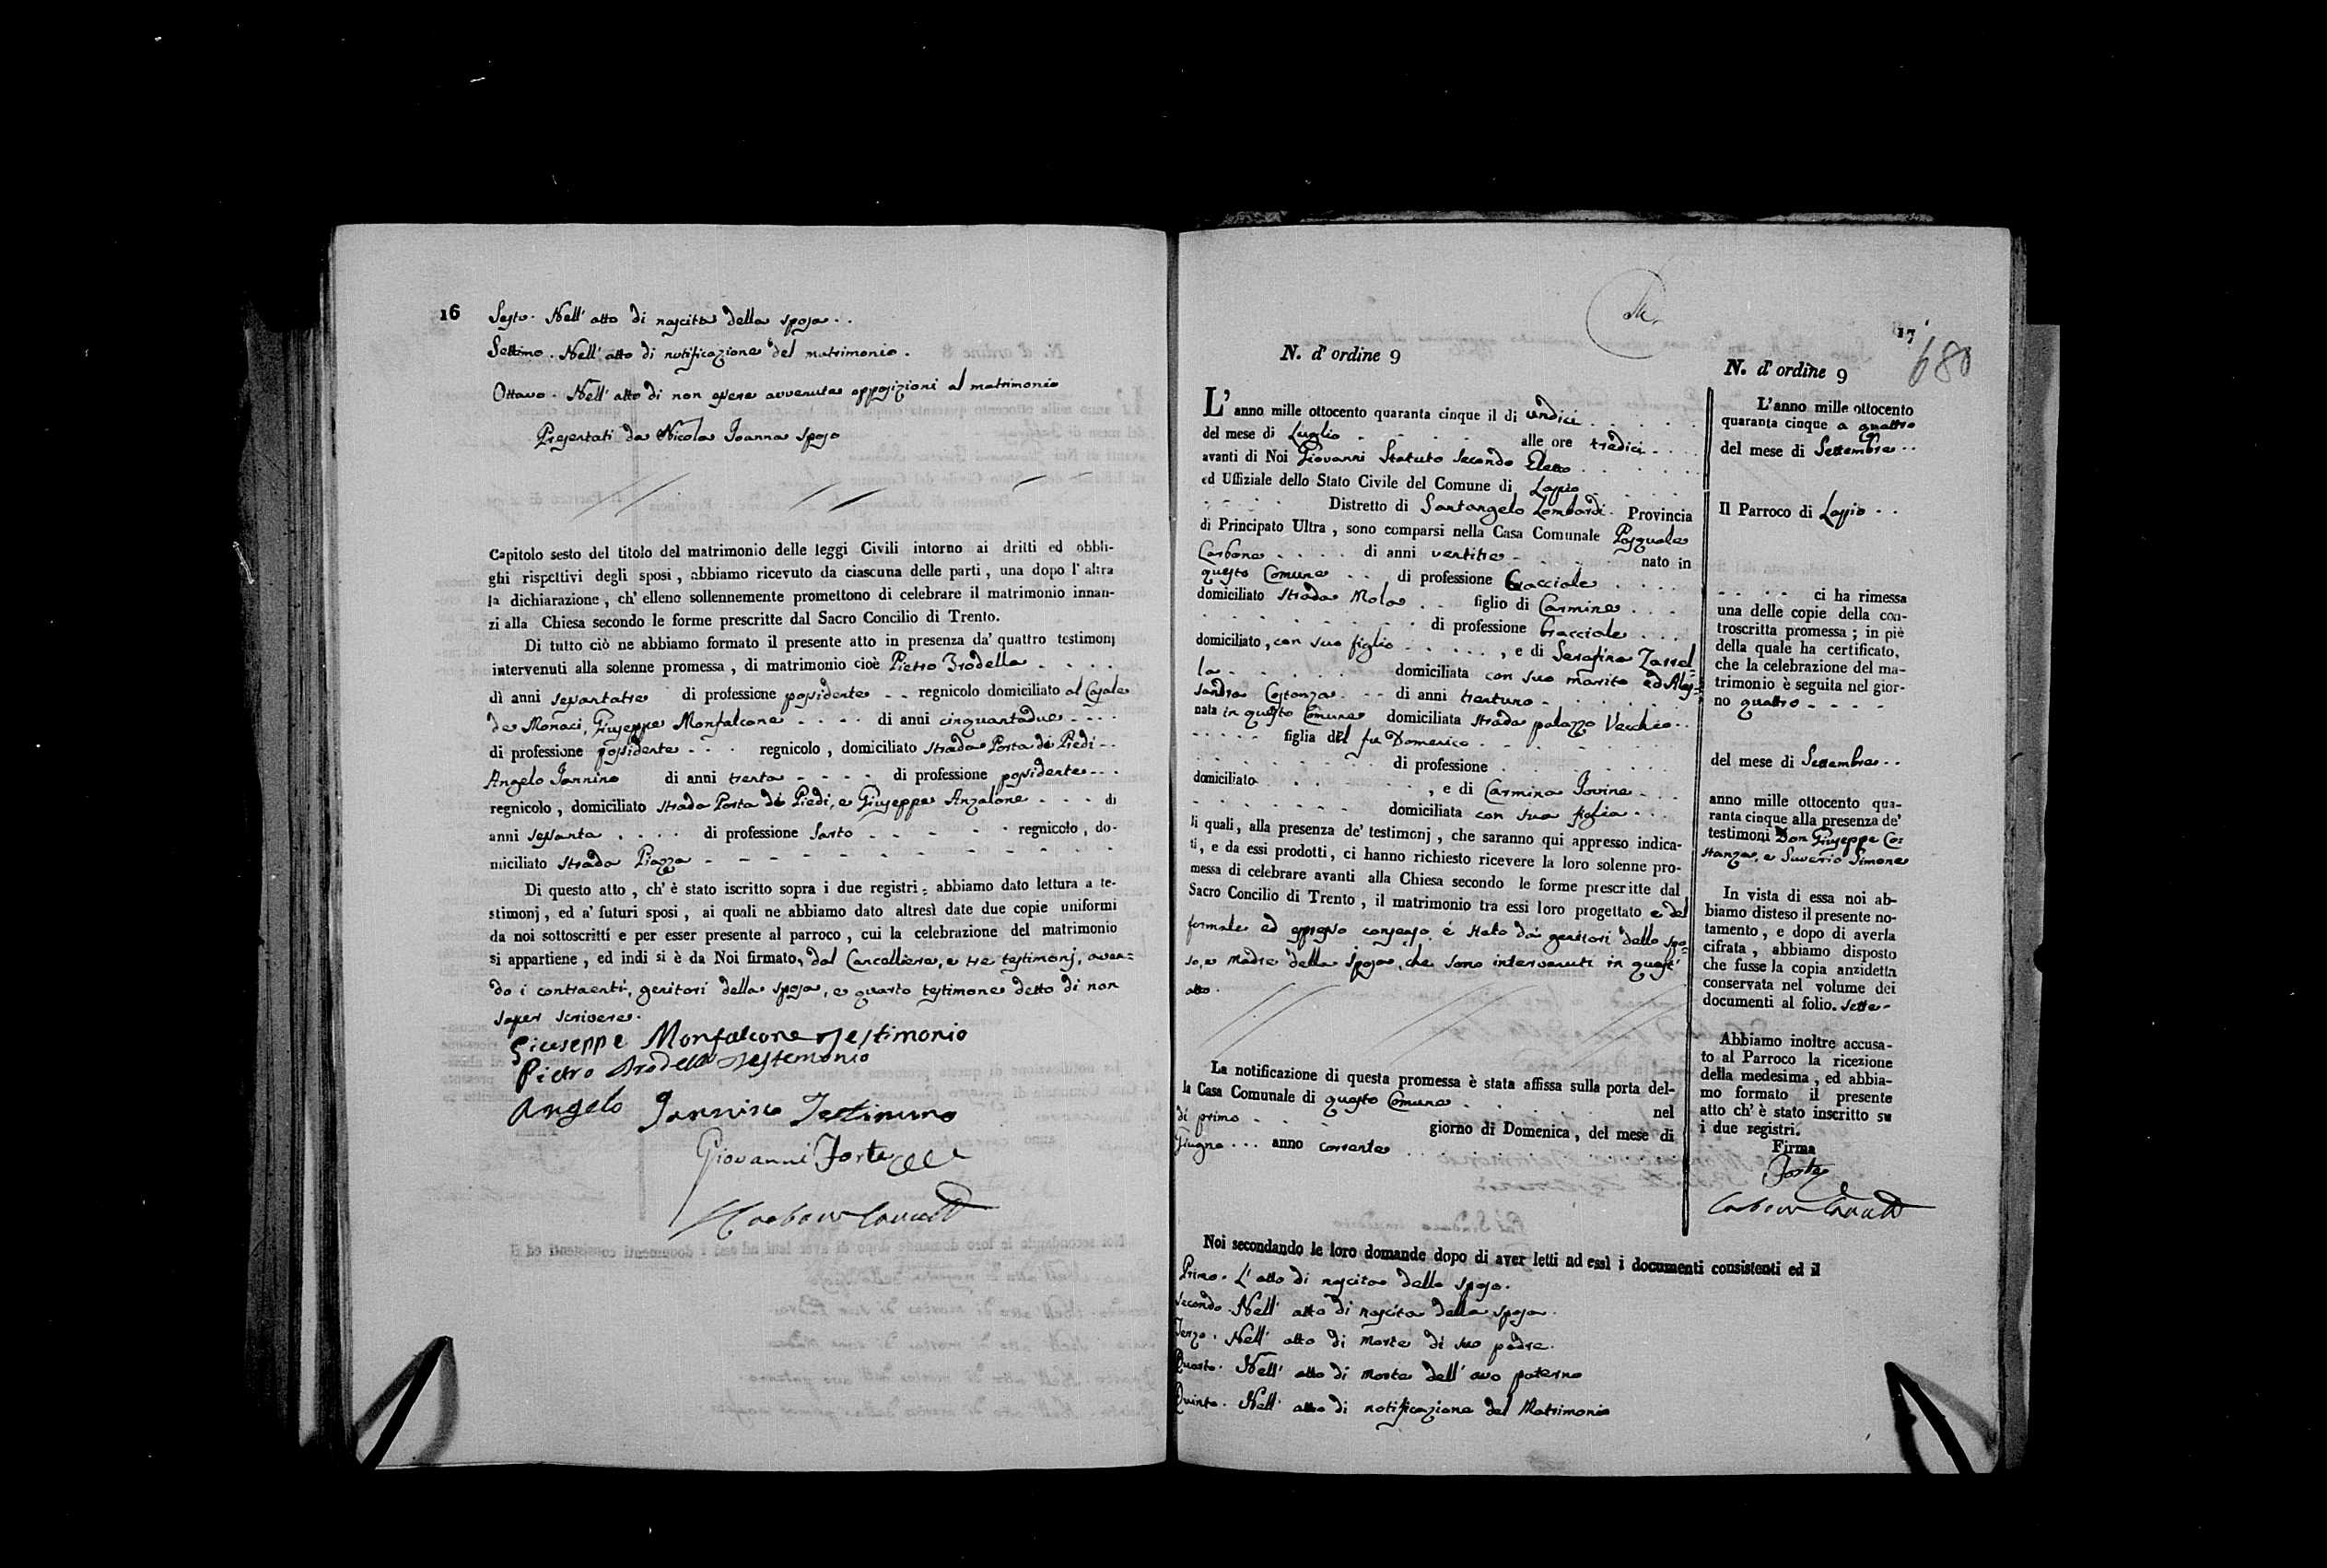 16
Sesto. Nell' atto di nascita della sposa..
Settimo. Nell' atto di notificazione del matrimonio.
Ottavo. Nell' atto di non essere avvenute opposizioni al matrimonio
Presentati da Nicola Ioanna sposo
Capitolo sesto del titolo del matrimonio delle leggi Civili intorno ai dritti ed obbli-
ghi rispettivi degli sposi, abbiamo ricevuto da ciascuna delle parti, una dopo l' altra
la dichiarazione, ch' elleno sollennemente promettono di celebrare il matrimonio innan-
zi alla Chiesa secondo le forme prescritte dal Sacro Concilio di Trento.
Di tutto ciò ne abbiamo formato il presente atto in presenza da' quattro testimonj
intervenuti alla solenne promessa, di matrimonio cioè Pietro
di anni sessantatre di professione possidente - - regnicolo domiciliato al Casale
de Monaci, Giuseppe Monfalcone - - - - di anni cinquantadue - - - -
di professione possidente - - - regnicolo, domiciliato strada Porta di Piedi - -
Angelo Iannino di anni trenta - - - - di professione possidente - - -
regnicolo, domiciliato strada Porta di Piedi, e Giuseppe Anzalone - - - di
anni sessanta . . . . di professione Sarto - - - - - regnicolo, do-
miciliato strada Piazza - - - - - - - - - - - -
Di questo atto, ch' è stato iscritto sopra i due registri; abbiamo dato lettura a te-
stimonj, ed a' futuri sposi, ai quali ne abbiamo dato altresì date due copie uniformi
da noi sottoscritti e per esser presente al parroco, cui la celebrazione del matrimonio
si appartiene, ed indi si è da Noi firmato, dal Cancelliere, e tre testimonj, aven=
do i contraenti, genitori della sposa, e quarto testimone detto di non
saper scrivere.
Giuseppe Monfalcone Testimonio
Pietro Testemonio
Angelo Iannino Testimuno
Giovanni Forte
17
680
N. d' ordine 9
L' anno mille ottocento quaranta cinque il di undici . . . . .
del mese di Luglio - - - - - alle ore tredici - - - -
avanti di Noi Giovanni Statuto Secondo Eletto . . . . . .
ed Uffiziale dello Stato Civile del Comune di Lapio . . . . .
- - - - Distretto di Santangelo Lombardi. Provincia
di Principato Ultra, sono comparsi nella Casa Comunale Pasquale
Carbone . . . . di anni ventitre - . . . nato in
questo Comune . . di professione bracciale . . . .
domiciliato strada Mola . . figlio di Carmine . . .
. . . . . . . . di professione bracciale . . .
domiciliato, con suo figlio . . . . . , e di Serafina Zarrel-
la . . . . . . domiciliata con suo marito ed Ales-
sandra Costanza . - - di anni trentuno - . . . . .
nata in questo Comune domiciliata strada palazzo Vecchio . .
- - - - - figlia del fu Domenico . . . . . .
. . . . . . . di professione . . . . . . .
domiciliato . . . . . . , e di Carmina Iovine - . . .
- - - - - - - domiciliata con sua figlia - - -
li quali, alla presenza de' testimonj, che saranno qui appresso indica-
ti, e da essi prodotti, ci hanno richiesto ricevere la loro solenne pro-
messa di celebrare avanti alla Chiesa secondo le forme prescritte dal
Sacro Concilio di Trento, il matrimonio tra essi loro progettato e del
formale ed espresso consenso è stato da' genitori dello spo-
so, e Madre della sposa, che sono intervenuti in quest'
atto.
La notificazione di questa promessa è stata affissa sulla porta del-
la Casa Comunale di questo Comune . . . . . . nel
di primo - . . . giorno di Domenica, del mese di
Giugno . . . anno corrente . . . .
Noi secondando le loro domande dopo di aver letti ad essi i documenti consistenti ed il
Primo. L' atto di nascita dello sposo.
Secondo. Nell' atto di nascita della sposa.
Terzo. Nell' atto di morte di suo padre.
Quarto. Nell' atto di morte dell' avo paterno
Quinto. Nell' atto di notificazione del Matrimonio
N. d' ordine 9
L' anno mille ottocento
quaranta cinque a quattro
del mese di Settembre . .
Il Parroco di Lapio . .
- - - - ci ha rimessa
una delle copie della con-
troscritta promessa; in piè
della quale ha certificato,
che la celebrazione del ma-
trimonio è seguita nel gior-
no quattro - - - -
del mese di Settembre . .
anno mille ottocento qua-
ranta cinque alla presenza de'
testimoni Don Giuseppe Co-
stanza, e Suverio Simone
In vista di essa noi ab-
biamo disteso il presente no-
tamento, e dopo di averla
cifrata, abbiamo disposto
che fusse la copia anzidetta
conservata nel volume dei
documenti al folio. sette -
Abbiamo inoltre accusa-
to al Parroco la ricezione
della medesima, ed abbia-
mo formato il presente
atto ch' è stato inscritto su
i due registri.
Firma
Forte